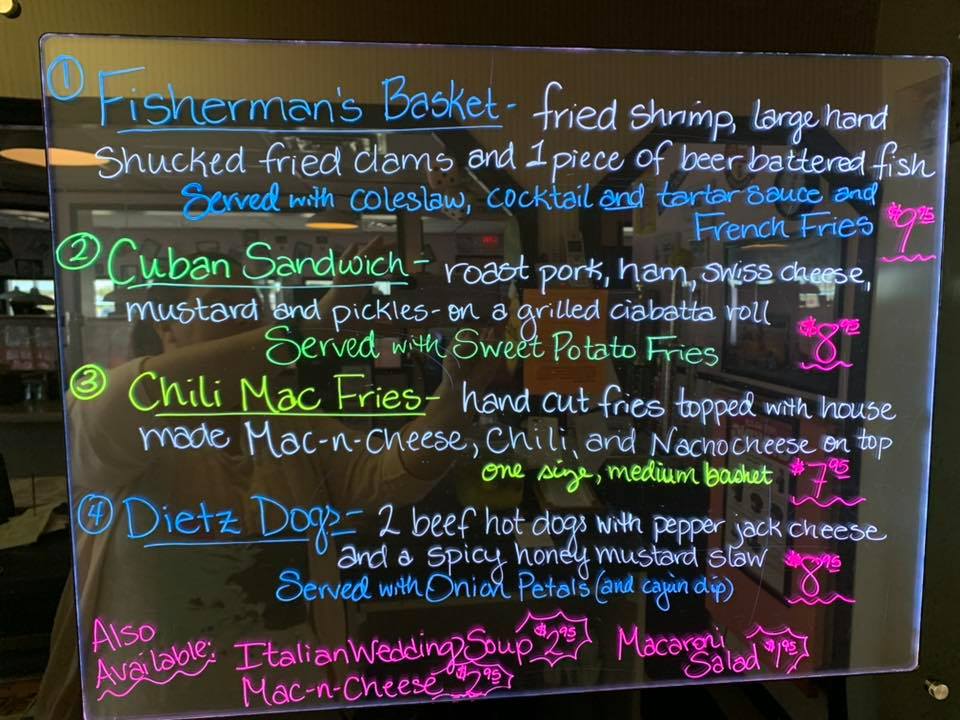 ① Fisherman's Basket - fried shrimp, large hand
shucked fried clams and 1 piece of beer battered fish
Served with coleslaw, cocktail and tartar sauce and
French Fries $9.95
② Cuban Sandwich - roast pork, ham, swiss cheese,
mustard and pickles - on a grilled ciabatta roll
Served with Sweet Potato Fries $8.95
③ Chili Mac Fries - hand cut fries topped with house
made Mac-n-Cheese, Chili, and Nacho cheese on top
one size, medium basket $7.95
④ Dietz Dogs - 2 beef hot dogs with pepper jack cheese
and a spicy honey mustard slaw
Served with Onion Petals (and cajun dip) $8.95
Also
Available: Italian Wedding Soup $2.95 Macaroni
Salad $1.95
Mac-n-Cheese $2.95